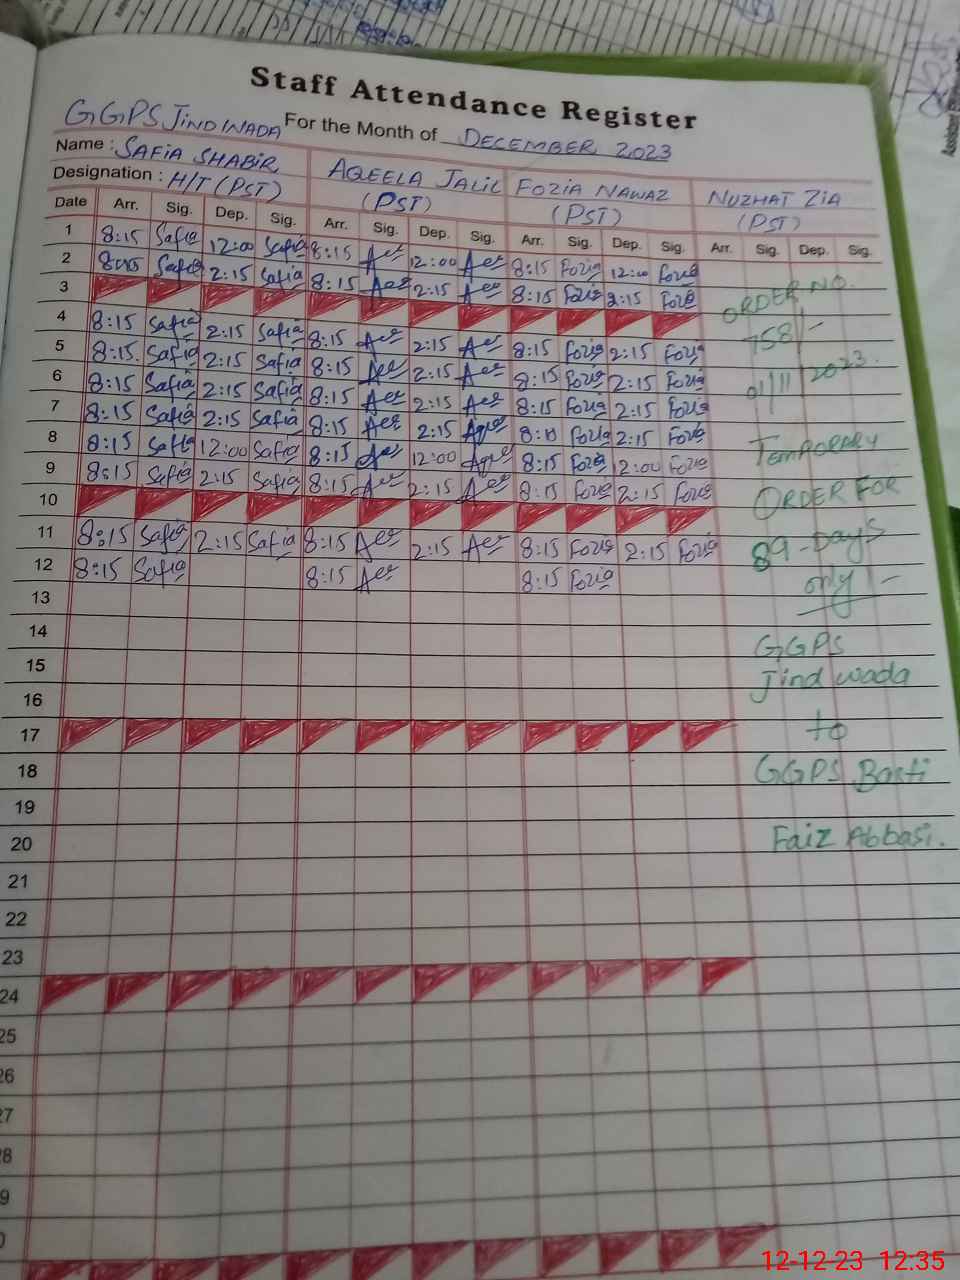 Staff Attendance Register
GGPS JIND WADA For the Month of DECEMBER 2023
Name : SAFIA SHABIR AQEELA JALIL FOZIA NAWAZ NUZHAT ZIA
Designation : H/T (PST) (PST) (PST) (PST)
Date Arr. Sig. Dep. Sig. Arr. Sig. Dep. Sig. Arr. Sig. Dep. Sig. Arr. Sig. Dep. Sig.
1 8:15 Safia 12:00 Safia 8:15 12:00 8:15 Fozia 12:00 Fozia
2 Safia 2:15 Safia 8:15 2:15 8:15 Fozia 2:15 Fozia
3
4 8:15 Safia 2:15 Safia 8:15 2:15 8:15 Fozia 2:15 Fozia
5 8:15 Safia 2:15 Safia 8:15 2:15 8:15 Fozia 2:15 Fozia
6 8:15 Safia 2:15 Safia 8:15 2:15 8:15 Fozia 2:15 Fozia
7 8:15 Safia 2:15 Safia 8:15 2:15 8:10 Fozia 2:15 Fozia
8 8:15 Safia 12:00 Safia 8:15 12:00 8:15 Fozia 12:00 Fozia
9 8:15 Safia 2:15 Safia 8:15 2:15 8:15 Fozia 2:15 Fozia
10
11 8:15 Safia 2:15 Safia 8:15 2:15 8:15 Fozia 2:15 Fozia
12 8:15 Safia 8:15 8:15 Fozia
13
14
15
16
17
18
19
20
21
22
23
24
25
26
27
28
9
0
ORDER NO.
758/-
01/11/2023.
TEMPORARY
ORDER FOR
89-Days
only/-
GGPS
Jind wada
to
GGPS Basti
Faiz Abbasi.
12-12-23 12:35